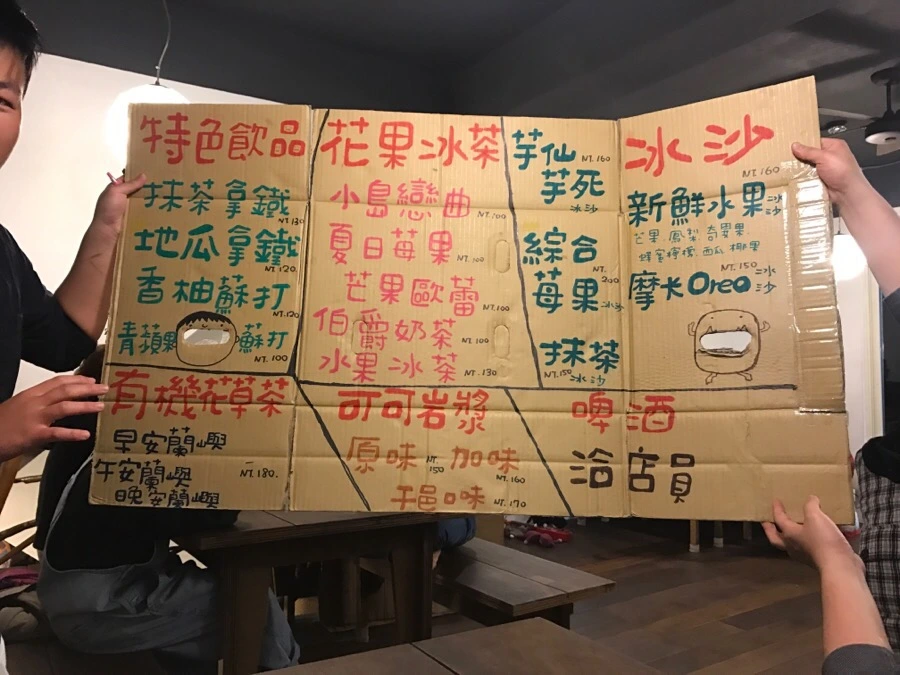 特色飲品
抹茶拿鐵 NT.130
地瓜拿鐵 NT.120
香柚蘇打 NT.120
青蘋果蘇打 NT.100
花果冰茶
小島戀曲 NT.100
夏日莓果 NT.100
芒果歐蕾 NT.100
伯爵奶茶 NT.100
水果冰茶 NT.130
芋仙 NT.160
芋死
冰沙
綜合 NT.200
莓果冰沙
抹茶
NT.150 冰沙
冰沙 NT.160
新鮮水果冰沙
芒果 鳳梨 奇異果
蜂蜜檸檬 西瓜 椰果
NT.150
摩卡Oreo冰沙
有機花草茶
早安蘭嶼
午安蘭嶼 NT.180.
晚安蘭嶼
可可岩漿
原味 NT.150 加味 NT.160
干邑口味 NT.170
啤酒
洽店員